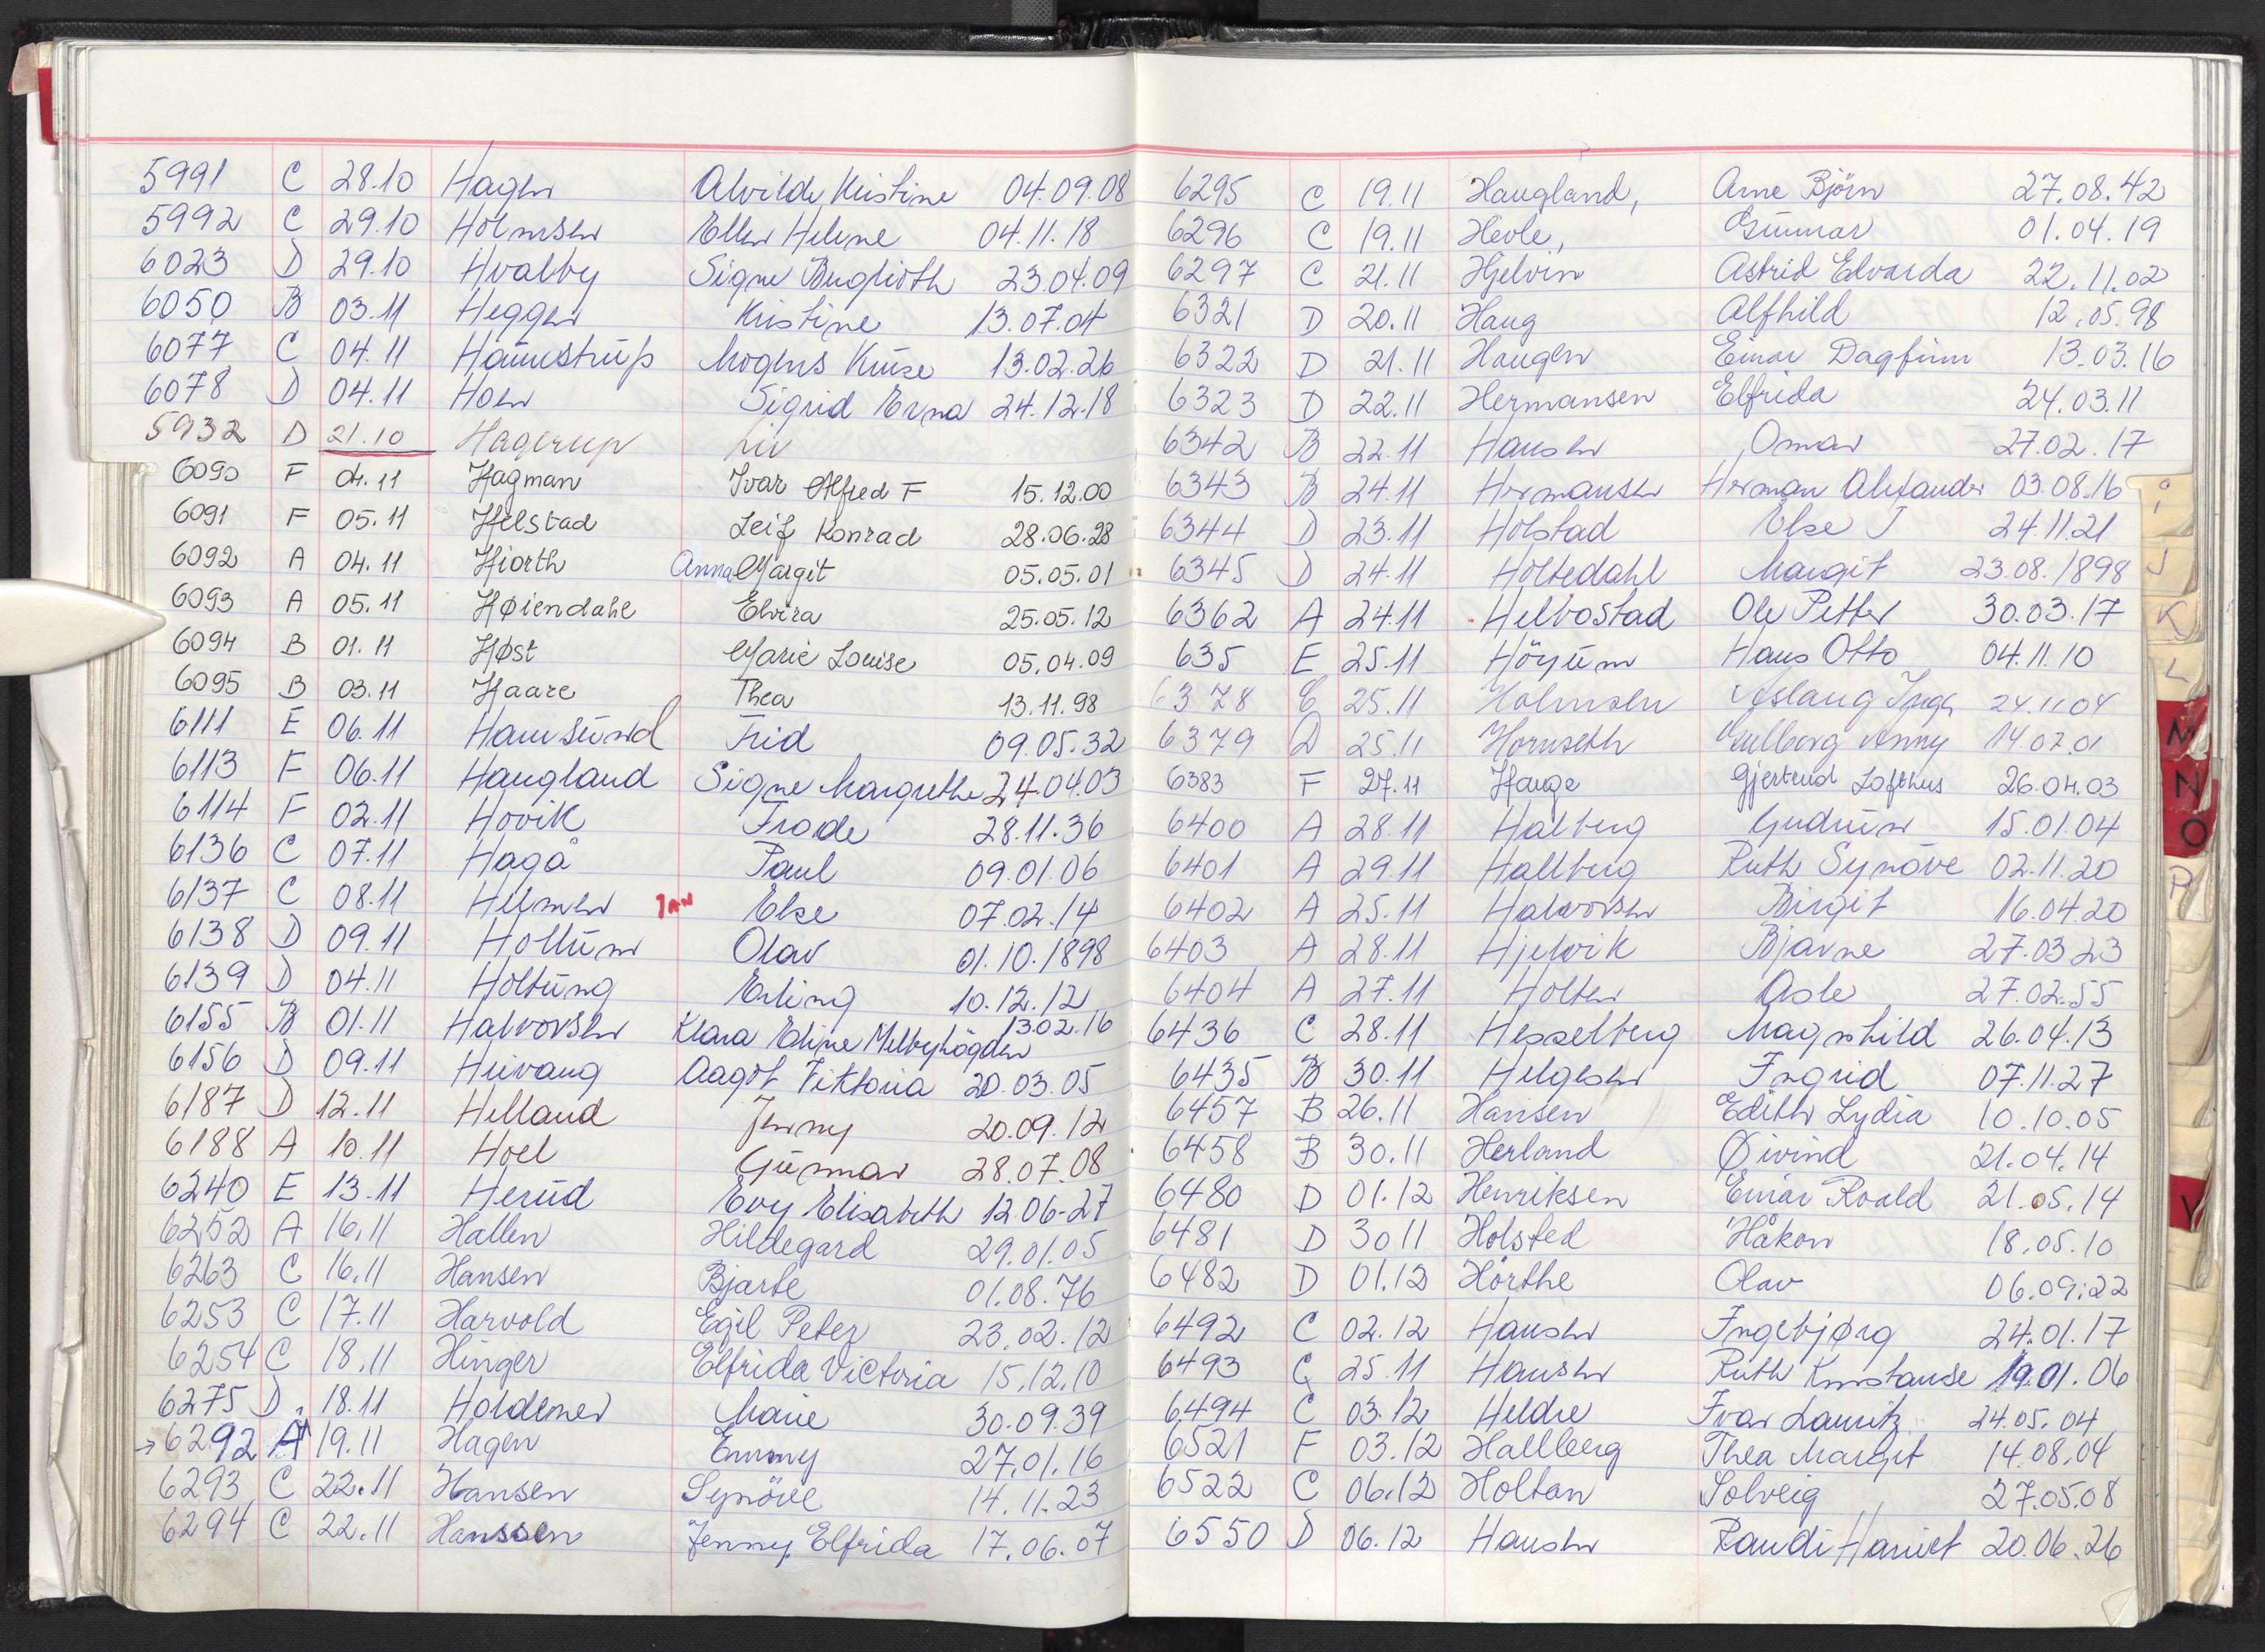 5991 C 28.10 Hagen Alvilde Kristine 04.09.08
5992 C 29.10 Holmsen Ellen Helene 04.11.18
6023 D 29.10 Hvalby Signe 23.04.09
6050 B 03.11 Heggen Kristine 13.07.04
6077 C 04.11 Haunstrup Mogens Kruse 13.02.26
6078 D 04.11 Hoen Sigrid Erna 24.12.18
5932 D 21.10 Hagerup Liv
6090 F 04.11 Hagman Ivar Alfred F 15.12.00
6091 F 05.11 Helstad Leif Konrad 28.06.28
6092 A 04.11 Hiorth Anna Margit 05.05.01
6093 A 05.11 Høiendahl Elvira 25.05.12
6094 B 01.11 Høst Marie Louise 05.04.09
6095 B 03.11 Haare Thea 13.11.98
6111 E 06.11 Hamsund Frid 09.05.32
6113 F 06.11 Haugland Signe Margrethe 24.04.03
6114 F 02.11 Hovik Frode 28.11.36
6136 C 07.11 Hagå Paul 09.01.06
6137 C 08.11 Helmen JAN Else 07.02.14
6138 D 09.11 Hollum Olav 01.10.1898
6139 D 04.11 Holtung Erling 10.12.12
6155 B 01.11 Halvorsen Klara Eline Melbyhögden 13.02.16
6156 D 09.11 Heivang Aagot Viktoria 20.03.05
6187 D 12.11 Helland Jenny 20.09.12
6188 A 10.11 Hoel Gunnar 28.07.08
6240 E 13.11 Herud Evy Elisabeth 12.06-27
6252 A 16.11 Hallen Hildegard 29.01.05
6263 C 16.11 Hansen Bjarte 01.08.76
6253 C 17.11 Harvold Egil Peter 23.02.12
6254 C 18.11 Hinger Elfrida Victoria 15.12.10
6275 D 18.11 Holdener Marie 30.09.39
→ 6292 A 19.11 Hagen Emmy 27.01.16
6293 C 22.11 Hansen Synöve 14.11.23
6294 C 22.11 Hanssen Jenny Elfrida 17.06.07
6295 C 19.11 Haugland, Arne Björn 27.08.42
6296 C 19.11 Hevle, Gunnar 01.04.19
6297 C 21.11 Hjelvin Astrid Edvarda 22.11.02
6321 D 20.11 Haug Alfhild 12.05.98
6322 D 21.11 Haugen Einar Dagfinn 13.03.16
6323 D 22.11 Hermansen Elfrida 24.03.11
6342 B 22.11 Hansen Omar 27.02.17
6343 B 24.11 Hermansen Herman Alexander 03.08.16
6344 D 23.11 Holstad Else J 24.11.21
6345 D 24.11 Holtedahl Margit 23.08.1898
6362 A 24.11 Helbostad Ole Petter 30.03.17
635 E 25.11 Höyum Hans Otto 04.11.10
6378 E 25.11 Holmsen Aslaug Inga 24.11.04
6379 D 25.11 Hornseth Gulborg Anny 14.07.01
6383 F 27.11 Hauge Gjertrud Lofthus 26.04.03
6400 A 28.11 Halberg Gudrun 15.01.04
6401 A 29.11 Hallberg Ruth Synöve 02.11.20
6402 A 25.11 Halvorsen Birgit 16.04.20
6403 A 28.11 Hjelvik Bjarne 27.03.23
6404 A 27.11 Holter Asle 27.02.55
6436 C 28.11 Hesselberg Magnhild 26.04.13
6435 B 30.11 Helgesen Ingrid 07.11.27
6457 B 26.11 Hansen Edith Lydia 10.10.05
6458 B 30.11 Herland Øivind 21.04.14
6480 D 01.12 Henriksen Einar Roald 21.05.14
6481 D 30 11 Holsted Håkon 18.05.10
6482 D 01.12 Hörthe Olav 06.09.22
6492 C 02.12 Hansen Ingebjørg 24.01.17
6493 C 25.11 Hansen Ruth Konstanse 19.01.06
6494 C 03.12 Heldre Ivar Lauritz 24.05.04
6521 F 03.12 Hallberg Thea Margit 14.08.04
6522 C 06.12 Holtan Solveig 27.05.08
6550 D 06.12 Hansen Randi Harriet 20.06.26
I
J
K
L
M
N
O
P
V